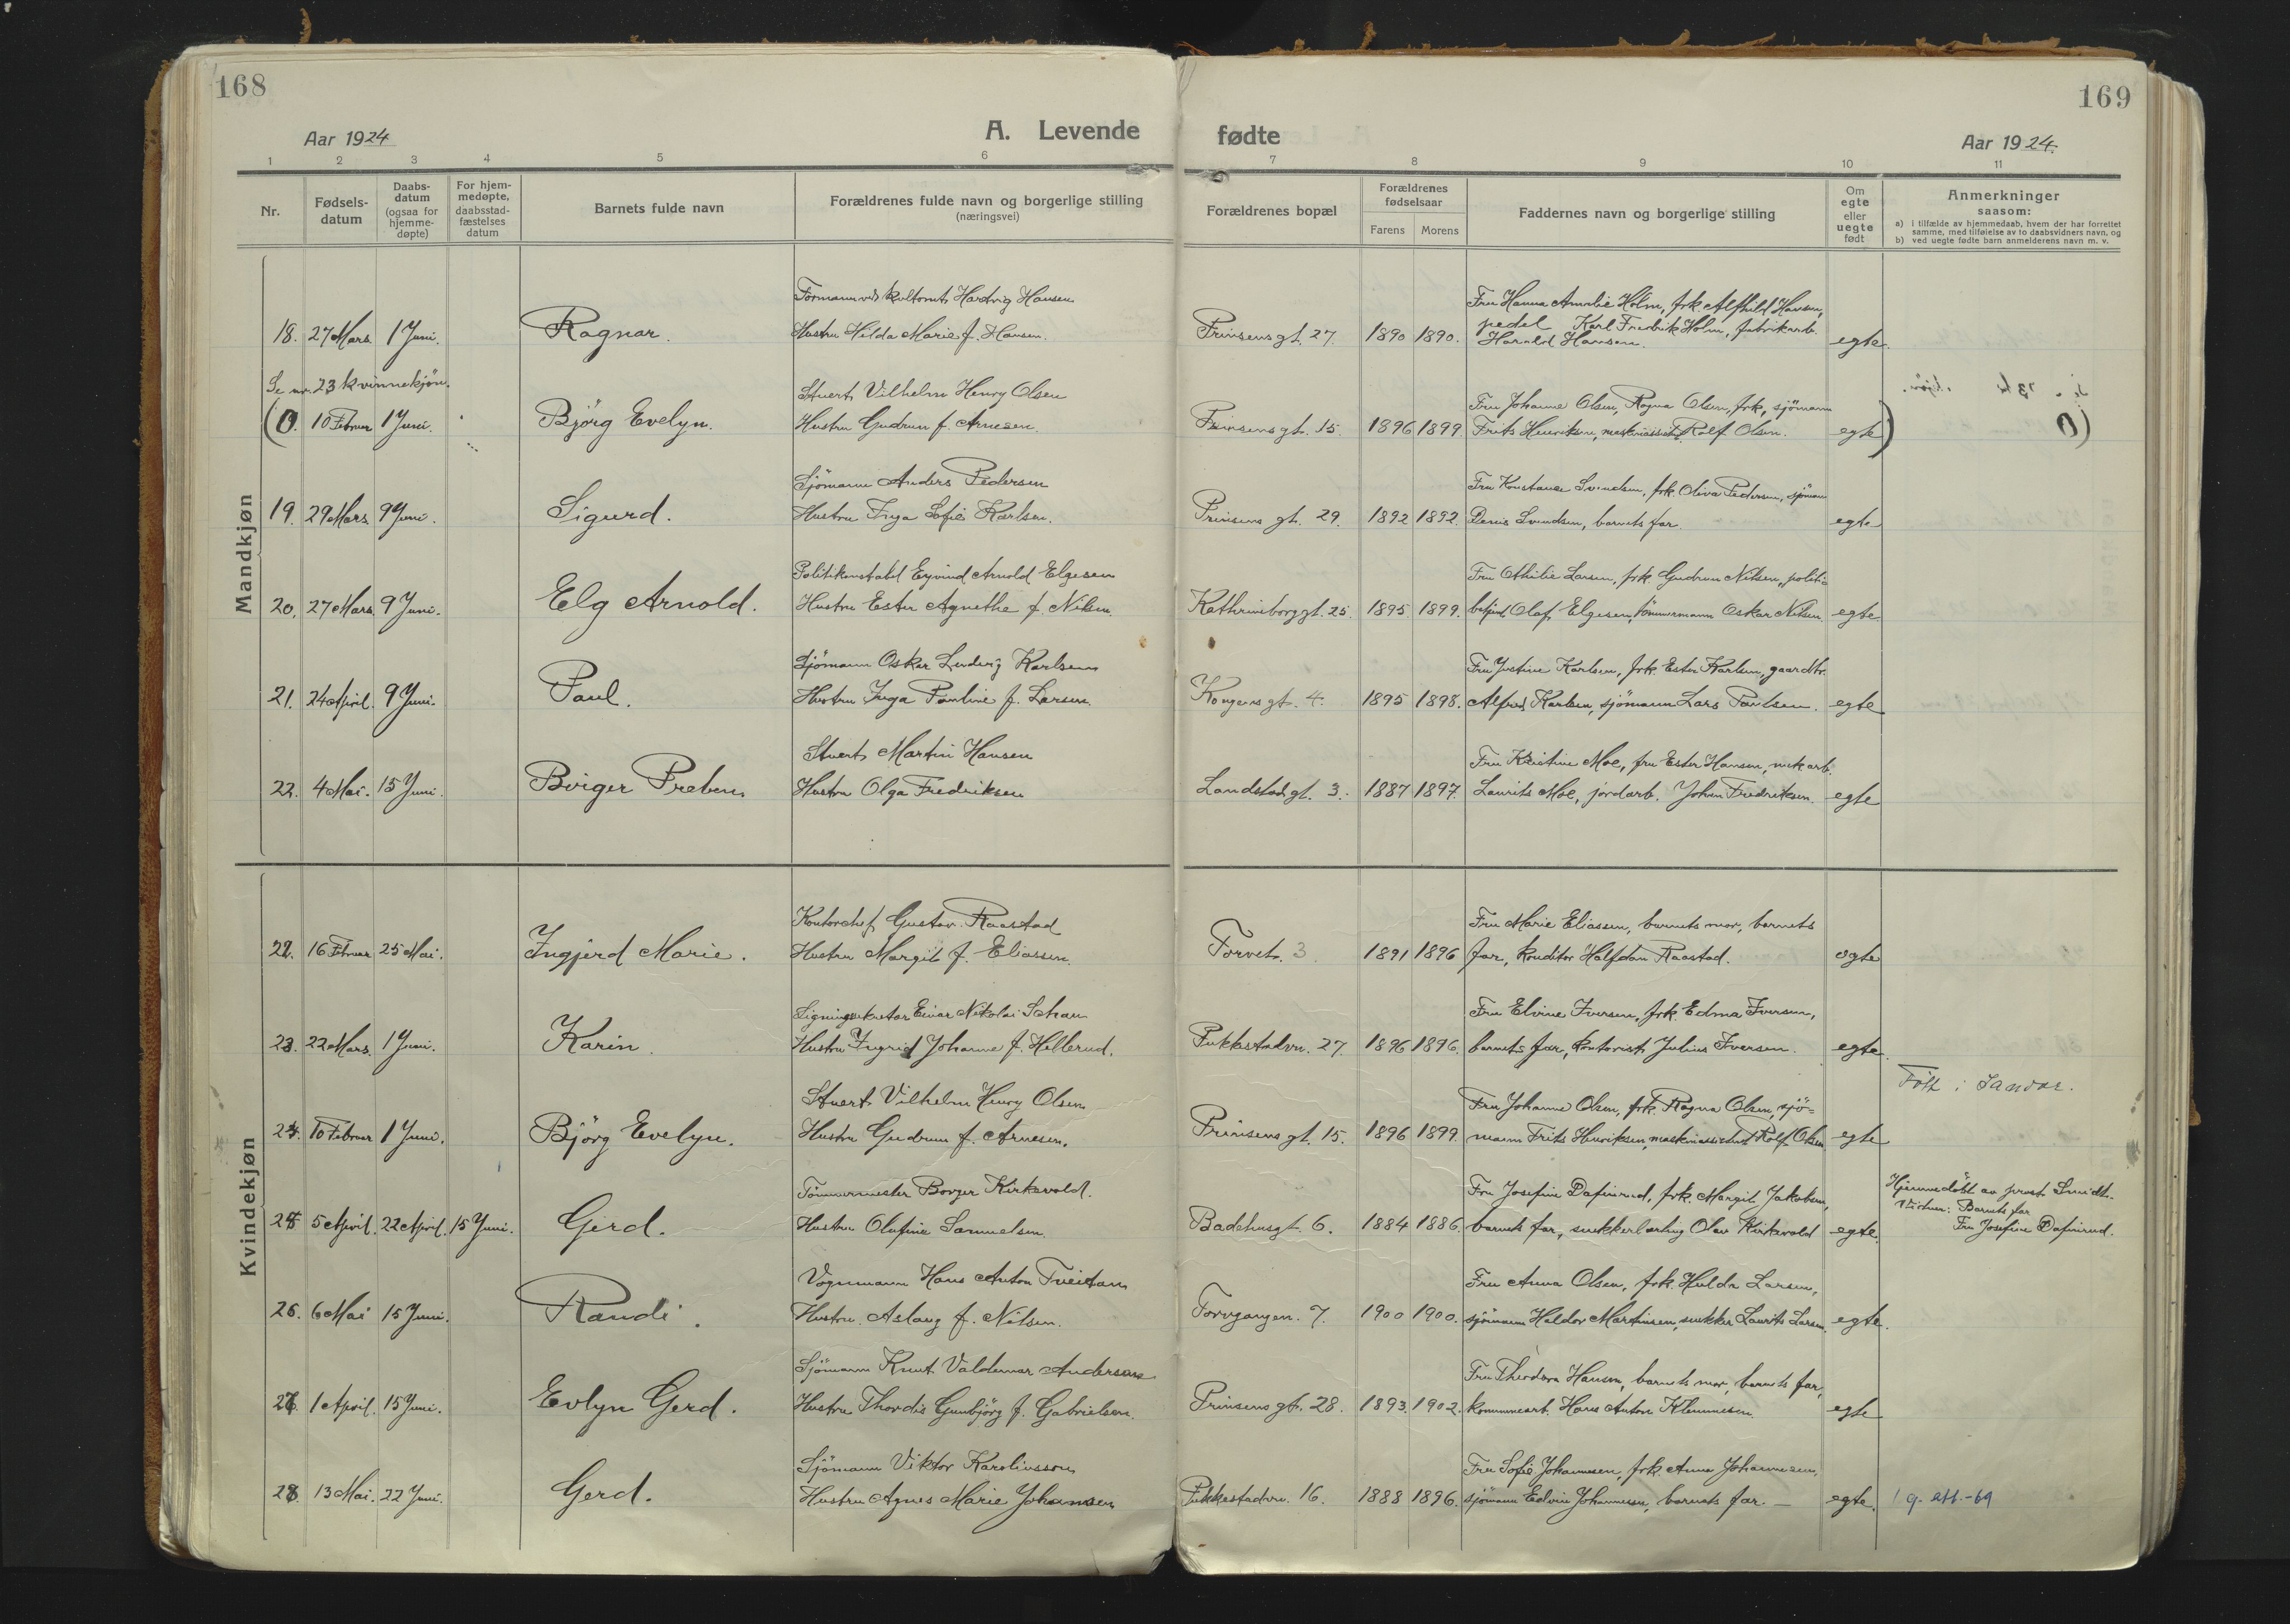 168
169
Aar 1924
A. Levende fødte
Aar 1924.
1 2 3 4 5 6 7 8 9 10 11
Nr.
Fødsels-
datum
Daabs-
datum
(ogsaa for
hjemme-
døpte)
For hjem-
medøpte,
daabsstad-
fæstelses
datum
Barnets fulde navn
Forældrenes fulde navn og borgerlige stilling
(næringsvei)
Forældrenes bopæl
Forældrenes
fødselsaar
Farens Morens
Faddernes navn og borgerlige stilling
Om
egte
eller
uegte
født
Anmerkninger
saasom:
a) i tilfælde av hjemmedaab, hvem der har forrettet
samme, med tilføielse av to daabsvidners navn, og
b) ved uegte fødte barn anmelderens navn m. v.
Mandkjøn
Formann ved Hartvig Hansen
Fru Hanna Amalie Holm, frk. Alfhild Hansen,
18. 27 Mars. 1 Juni. Ragnar. Hustru Hilda Marie f. Hansen. Prinsens gt. 27. 1890 1890. pedel Karl Fredrik Holm, fabrikarb.
Harald Hansen. egte.
Se nr. 23 kvinnekjøn.
Stuert Vilhelm Henry Olsen
Fru Johanne Olsen, Ragna Olsen, frk, sjömann
(0. 10 Februar 1 Juni. Björg Evelyn. Hustru Gudrun f. Arnesen. Prinsens gt. 15. 1896 1899. Frits Henriksen, maskinassist. Rolf Olsen. egte)
Sjömann Anders Pedersen
Fru Konstance Svendsen, frk. Oliva Pedersen, sjömann
19. 29 Mars. 9 Juni. Sigurd. Hustru Inga Sofie Karlsen. Prinsens gt. 29. 1892 1892. Svendsen, barnets far. egte
Politikonstabel Eyvind Arnold Elgesen
Fru Othilie Larsen, frk. Gudrun Nilsen, politi-
20. 27 Mars. 9 Juni. Elg Arnold. Hustru Ester Agnethe f. Nilsen. Kathrineborggt. 25. 1895. 1899. betjent Olaf Elgesen, tömmermann Oskar Nilsen. egte.
Sjömann Oskar Ludvig Karlsen
Fru Justine Karlsen, frk. Ester Karlsen, gaardbr.
21. 24 April. 9 Juni. Paul. Hustru Inga Pauline f. Larsen. Kongens gt. 4. 1895 1898. Alfred Karlsen, sjömann Lars Paulsen. egte
Stuert Martin Hansen
Fru Kristine Moe, fru Ester Hansen, mek arb.
22. 4 Mai. 15 Juni. Birger Preben. Hustru Olga Fredriksen Landstads gt. 3. 1887 1897. Laurits Moe, jordarb. Johan Fredriksen. egte
Kvindekjøn
Kontorchef Gustav Raastad
Fru Marie Eliassen, barnets mor, barnets
22. 16 Februar 25 Mai. Ingjerd Marie. Hustru Margit f. Eliassen. Torvet. 3 1891 1896 far, konditor Halfdan Raastad. egte
Ligningssekretær Einar Nikolai Schau
Fru Elvine Iversen, frk. Edma Iversen,
23. 22 Mars. 1 Juni. Karin. Hustru Ingrid Johanne f. Hillerud. Pukkestadvn. 27. 1896 1896. barnets far, kontorist Julius Iversen. egte.
Född i Sandar.
Stuert Vilhelm Henry Olsen
Fru Johanne Olsen, frk. Ragna Olsen, sjö-
24. 10 Februar 1 Juni. Björg Evelyn. Hustru Gudrun f. Arnesen. Prinsens gt. 15. 1896 1899. mann Frits Henriksen, maskinassistent Rolf Olsen egte
Tömmermester Borger Kirkevold.
Fru Josefine Dafinrud, frk. Margit Jakobsen,
Hjemmedöbt av prost Smidt.
Vidner: Barnets far
25 5 April. 22 April. 15 Juni. Gerd. Hustru Olufine Samuelsen. Badehusgt. 6. 1884 1886. barnets far, snekkerlærling Olav Kirkevold egte.
Fru Josefine Dafinrud.
Vognmann Hans Anton Tveitan
Fru Anna Olsen, frk. Hulda Larsen,
26. 6 Mai 15 Juni. Randi. Hustru. Aslaug f. Nilsen. Torvgangen. 7. 1900 1900. sjömann Haldor Martinsen, snekker Laurits Larsen. egte.
Sjömann Knut Valdemar Anderson
Fru Theodora Hansen, barnets mor, barnets far,
27. 1 April. 15 Juni. Evlyn Gerd. Hustru Thordis Gunbjörg f. Gabrielsen. Prinsens gt. 28. 1893. 1902. kommunearb. Hans Anton Klemmesen. egte
Sjömann Viktor Karolinsson
Fru Sofie Johannesen, frk. Anna Johannesen,
28. 13 Mai. 22 Juni. Gerd. Hustru Agnes Marie Johannesen Pukkestadvn. 16. 1888 1896. sjömann Edvin Johannesen, barnets far. — egte. 1 g. att.-69